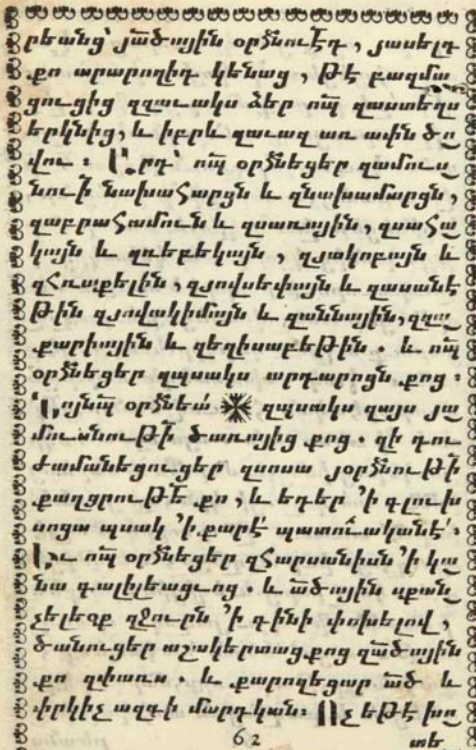 րեանց՝ յա՟ծային օրհնուէդ, յասելդ
քո արարողիդ կենաց, թէ բազմա
ցուցից զզաւակս ձեր ո՟պ զաստեղս
երկնից, և իբրև զաւազ առ ափն ծո
վու : Արդ՝ ո՟պ օրհնեցեր զամուս
նու՟ի նախահարցն և զնախամարցն,
զաբրահամուն և զսառային, զսահա
կայն և զռեբեկայն, զյակոբայն և
զՀռաքելին, զյովսեփայն և զասանէ
թին զյովակիմայն և զաննային, զզա
քարիային և զեղիսաբեթին . և ո՟պ
օրհնեցեր զպսակս արդարոցն քոց :
Այն՟պ օրհնեա՛ ※ զպսակս զայս յա
մուսնու՟թի ծառայից քոց . զի դու
ժամանեցուցեր զսոսա յօրհնու՟թի
քաղցրու՟թե քո, և եդեր ՚ի գլուխ
սոցա պսակ ՚ի քարէ՛ պատուականէ՛ :
Եւ ո՟պ օրհնեցեր զհարսանիսն ՚ի կա
նա գալիլեացւոց . և ա՟ծային սքան
չելեօք զջուրն ՚ի գինի փոխելով,
ծանուցեր աշակերտաց քոց զա՟ծային
քո զփառս . և քարոզեցար ա՟ծ և
փրկիչ ազգի մարդկան : Ոչ եթէ խո
62 տե